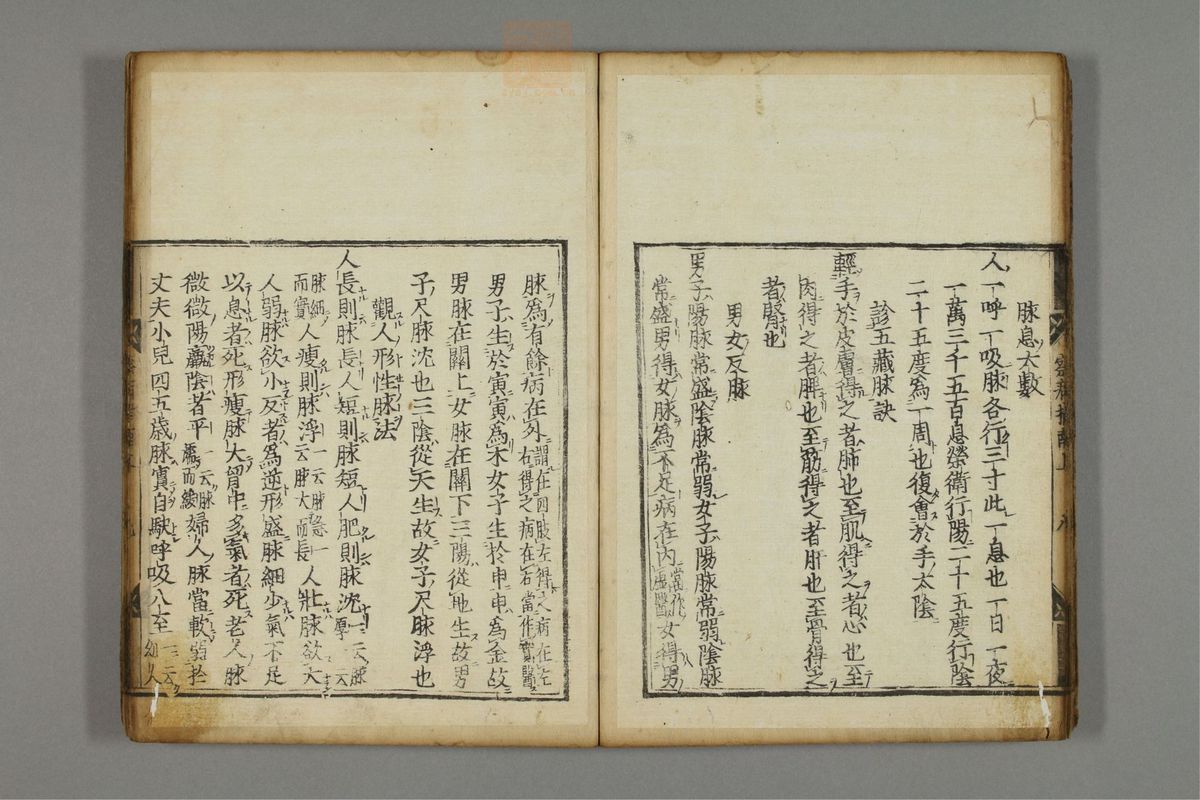 脉息大數
人一呼一吸脉各行三寸此一息也一日一夜
一萬三千五百息榮衛行陽二十五度行陰
二十五度為一周也復會於手太陰
診五藏脉訣
輕手於皮膚得之者肺也至肌得之者心也至
肉得之者脾也至筋得之者肝也至骨得之
者腎也
男女反脉
男子陽脉常盛陰脉常弱女子陽脉常弱陰脉
常盛男得女脉為不足病在内 女得男
脉為有餘病在外謂在四肢左得之病在左右得之病在右
男子生於寅寅為木女子生於申申為金故
男脉在關上女脉在關下三陽從地生故男
子尺脉沈也三陰從天生故女子尺脉浮也
觀人形性脉法
人長則脉長人短則脉短人肥則脉沈
脉細而實人瘦則脉浮一云脉急一云脉大而長人壯脉欲大
人弱脉欲小反者為逆形盛脉細少氣不足
以息者死形瘦脉大胷中多氣者死老人脉
微微陽羸陰者平一云脉羸而緩婦人脉當軟弱於
丈夫小兒四五歳脉實自駃呼吸八至一云幼人